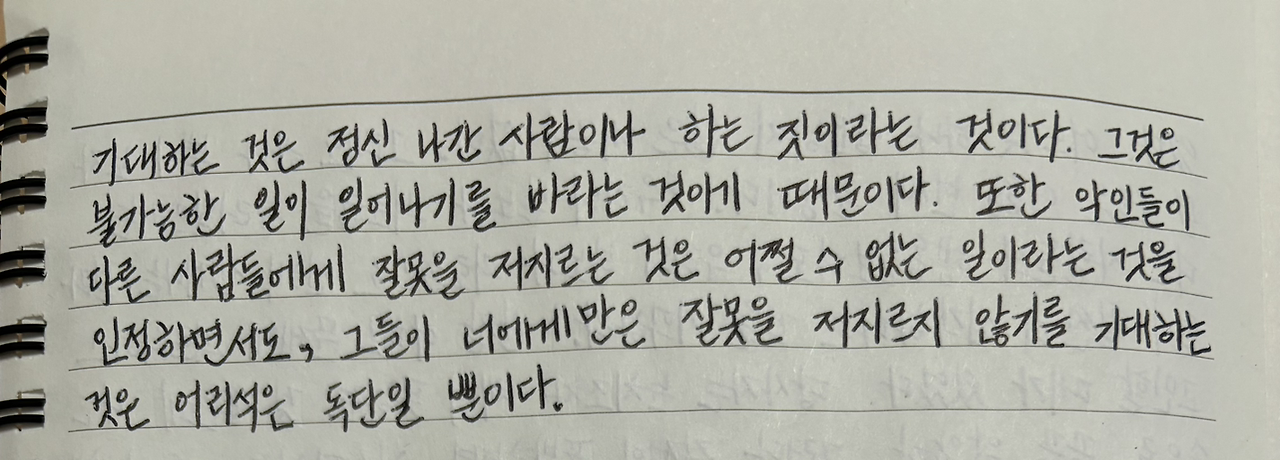 기대하는 것은 정신 나간 사람이나 하는 짓이라는 것이다. 그것은
불가능한 일이 일어나기를 바라는 것이기 때문이다. 또한 악인들이
다른 사람들에게 잘못을 저지르는 것은 어쩔 수 없는 일이라는 것을
인정하면서도, 그들이 너에게만은 잘못을 저지르지 않기를 기대하는
것은 어리석은 독단일 뿐이다.